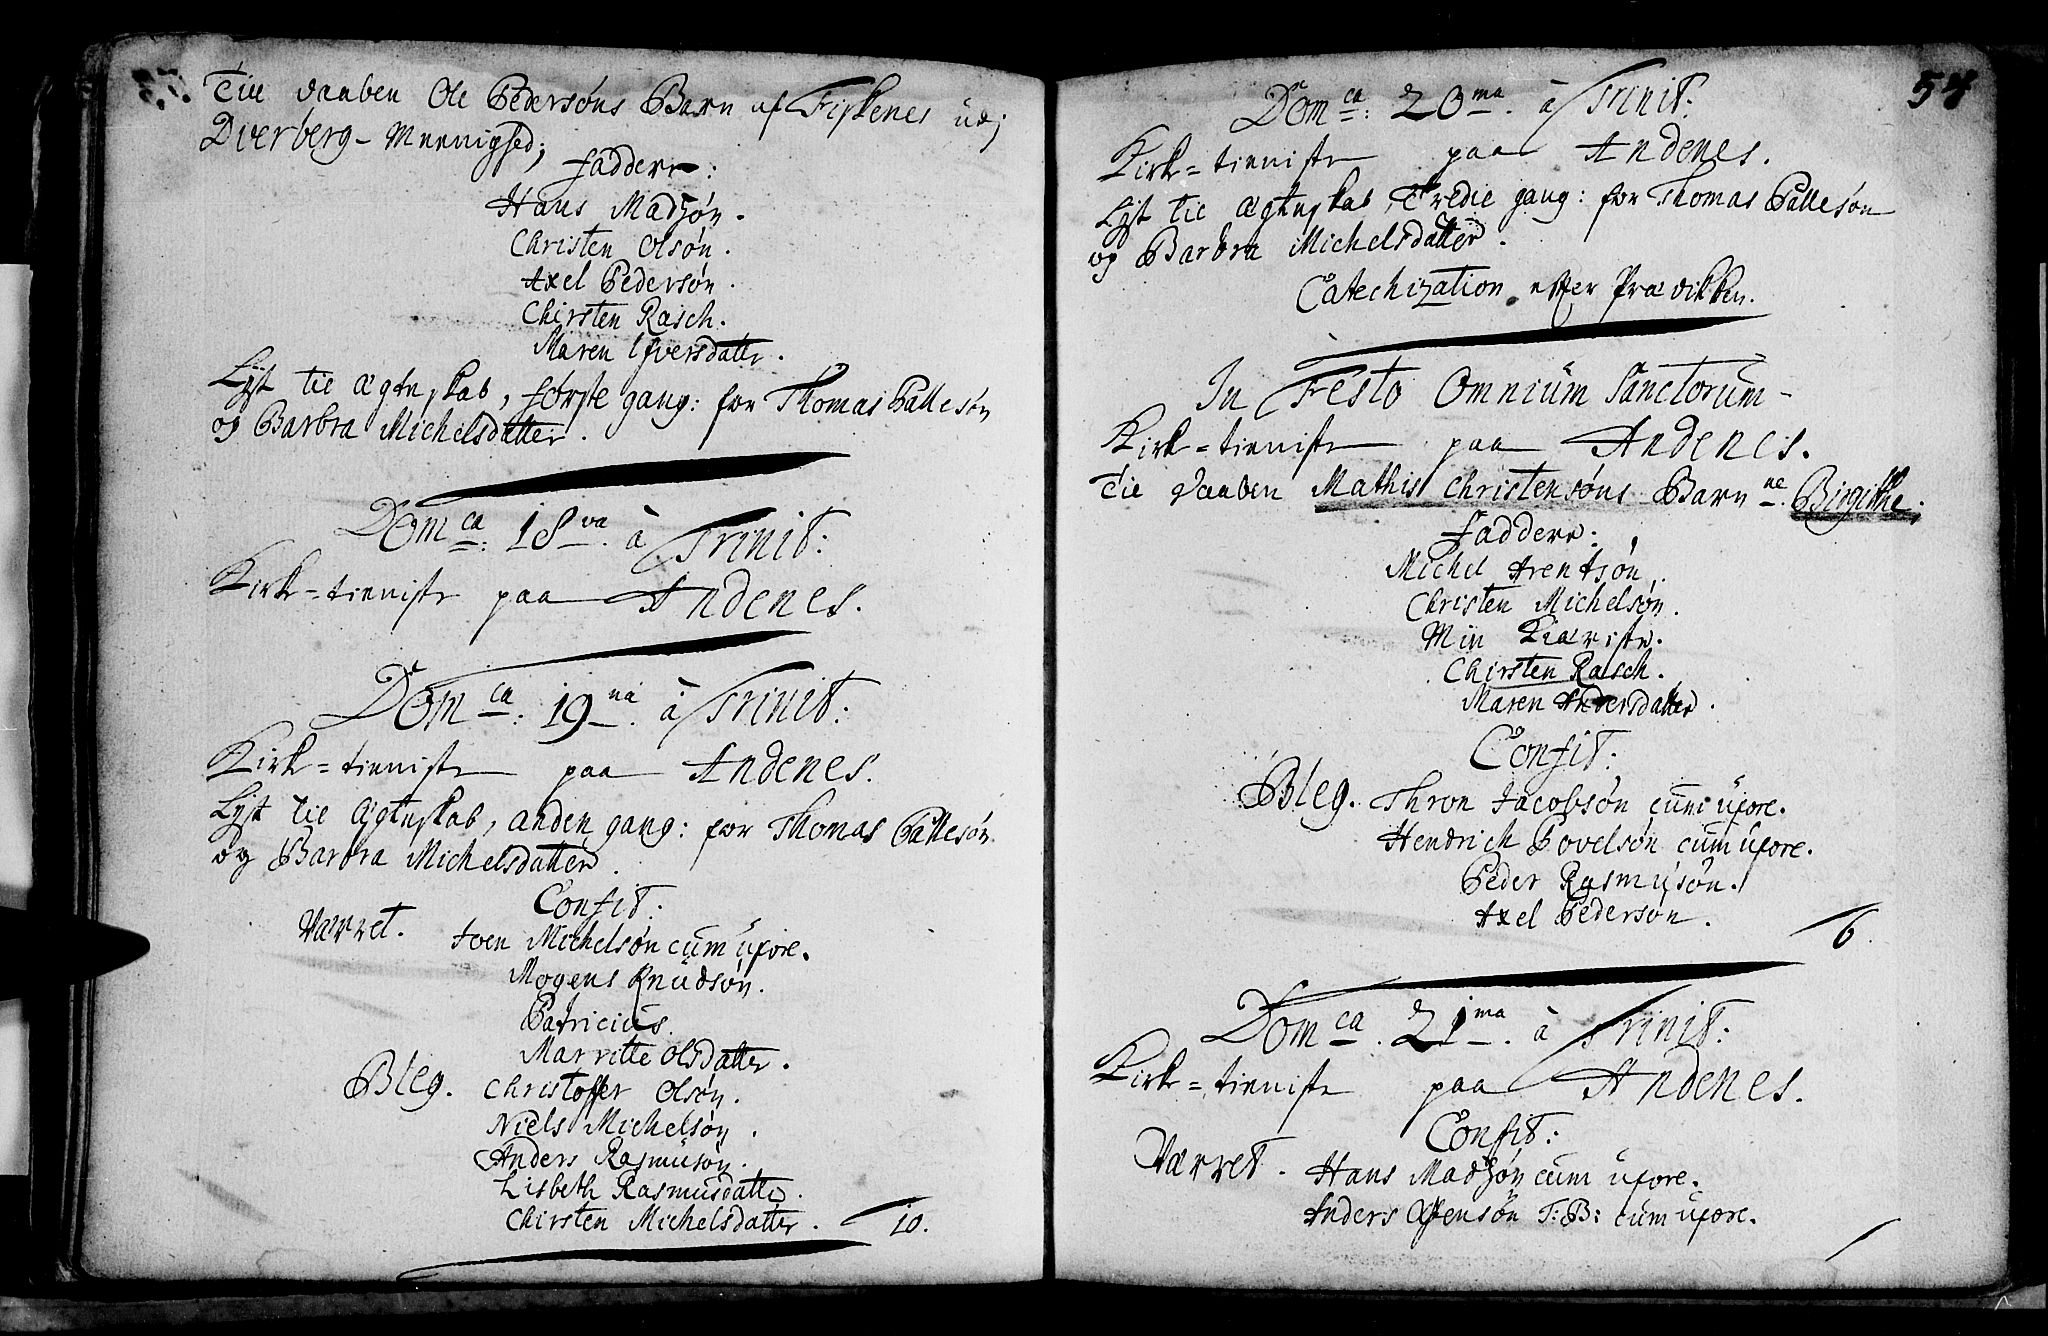 Til daaben Ole Pedersøns Barn af Fiskenes udj
Dverberg-Meenighed;
faddere:
Hans Madsøn.
Christen Olsøn.
Axel Pedersøn.
Chirsten Rasch.
Maren Ifversdatter.
Lyst til ægteskab, første gang: for Thomas Pallesøn
og Barbra Michelsdatter.
Domca: 18va. à Trinit:
Kirk=tieniste paa Andenes.
Domca: 19na. à Trinit:
Kirk=tieniste paa Andenes.
Lyst til ægteskab, anden gang: for Thomas Pallesøn
og Barbra Michelsdatter.
Confit:
Værret. Iven Michelsøn cum uxore.
Mogens Knudsøn.
Patricius.
Marritte Olsdatter.
Bleg. Christoffer Olsøn.
Niels Michelsøn.
Anders Rasmusøn.
Lisbeth Rasmusdatter.
Chirsten Michelsdatter. 10.
54
Domca: 20ma. à Trinit:
Kirk=tieniste paa Andenes.
Lyst til ægteskab, tredie gang: for Thomas Pallesøn
og Barbra Michelsdatter.
Catechization efter Prædikken.
In Festo Omnium Sanctorum-
Kirk=tieniste paa Andenes.
Til daaben Mathis Christensøns Barn ne. Birgitthe;
faddere:
Michel Arentsøn.
Christen Michelsøn.
Min Kiæriste.
Chirsten Rasch.
Maren Andersdatter.
Confit:
Bleg. Thron Jacobsøn cum uxore.
Hendrich Povelsøn cum uxore.
Peder Rasmusøn.
Axel Pedersøn. 6.
Domca. 21ma. à Trinit:
Kirk=tieniste paa Andenes.
Confit:
Værret. Hans Madsøn cum uxore.
Anders T:B: cum uxore.